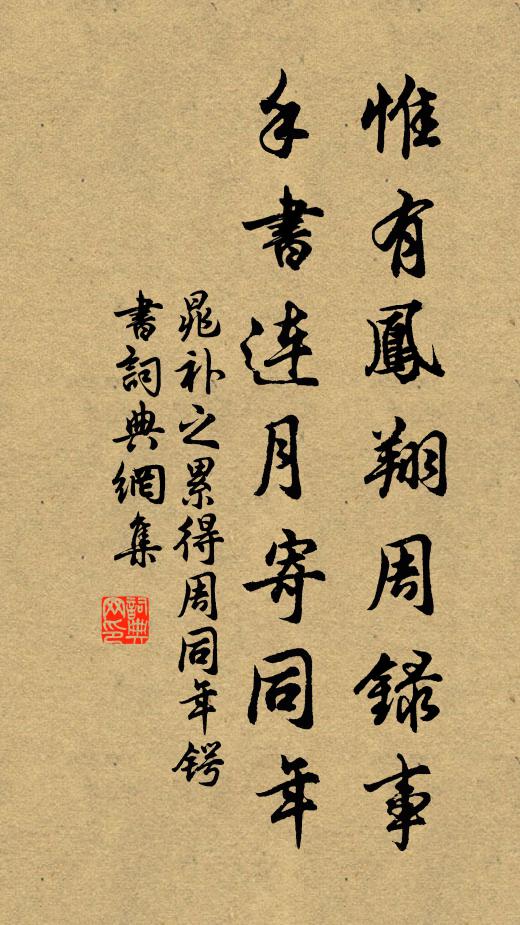 惟有鳳翔周録事
手書連月寄同年
晁补之累得周同年锷
書詞典網集
詞典网印